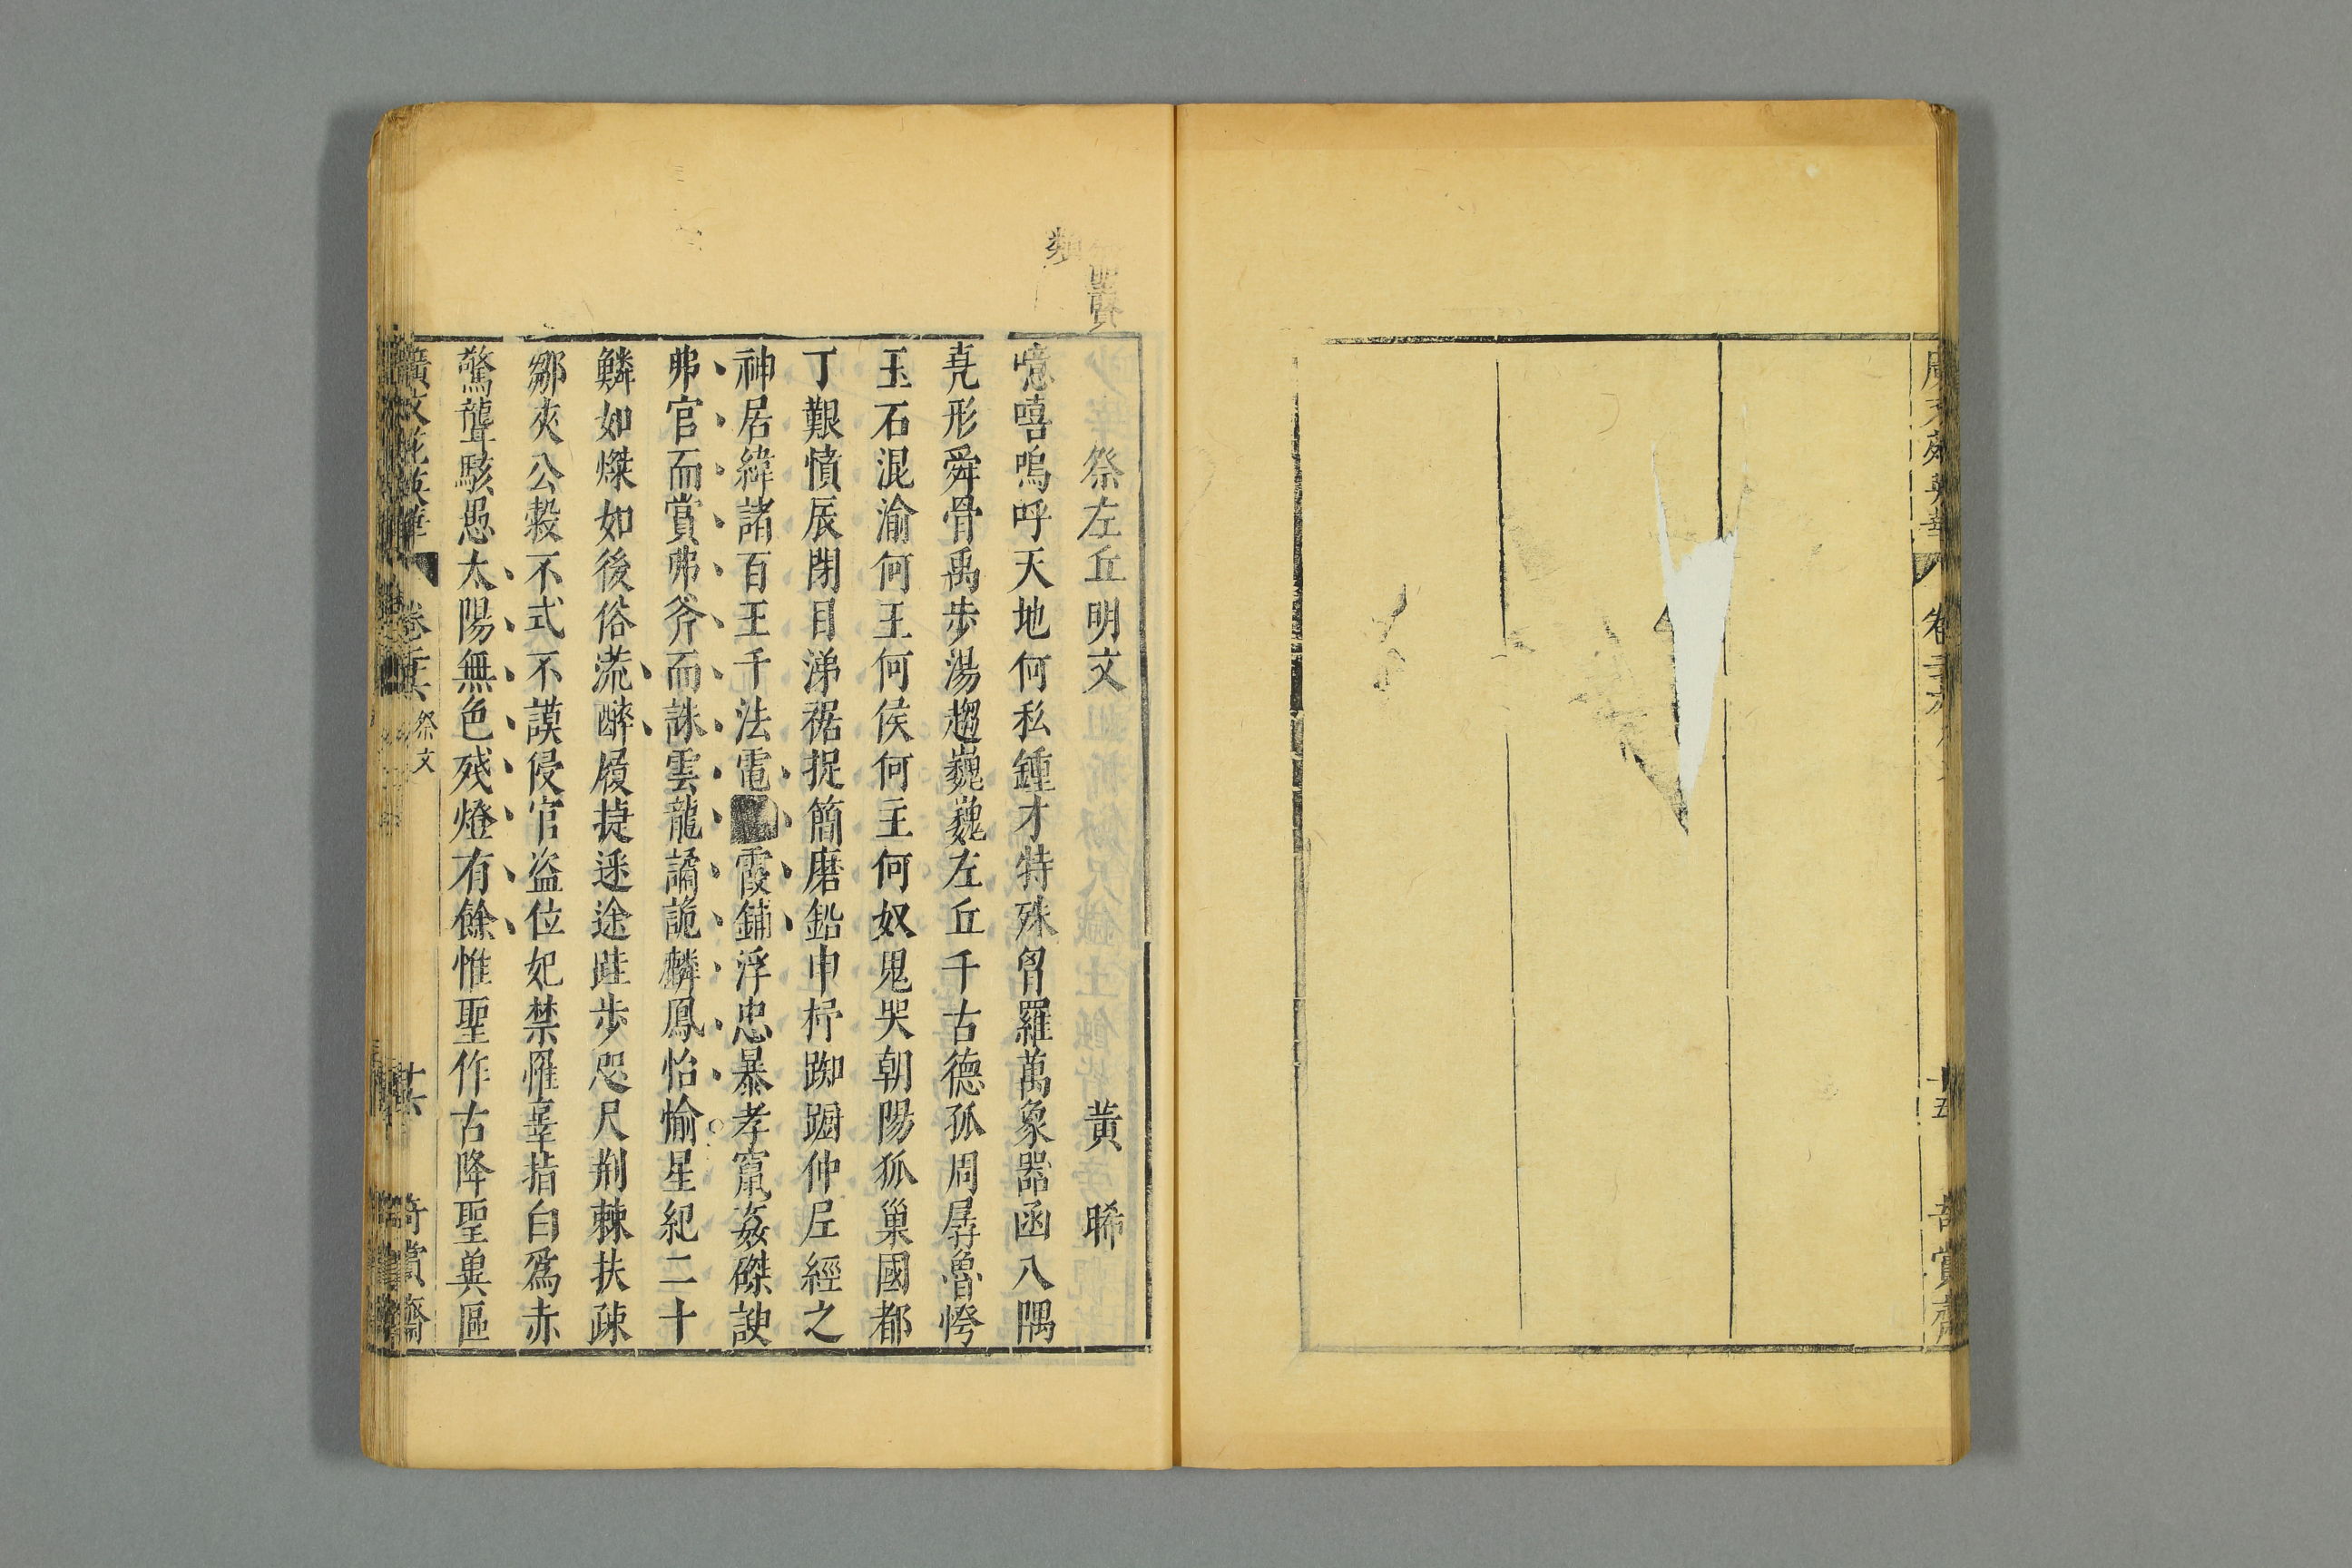 聖賢
類
祭左丘明文　黃晞
噫嘻嗚呼天地何私鍾才特殊胷羅萬象器函八隅
堯形舜骨禹步湯趨巍巍左丘千古德孤周孱魯愕
玉石混渝何王何侯何主何奴鬼哭朝陽狐巢國都
丁艱憤辰閉目涕裾捉簡磨鉛申杼踟蹰仲尼經之
神居緯諸百王千法電霞鋪浮忠暴孝竄姦磔諛
弗官而賞弗斧而誅雲龍譎詭麟鳳怡愉星紀二十
鱗如燦如後俗流醉履捷迷途跬步咫尺荆棘扶疎
鄒夾公穀不式不謨侵官盜位妃禁罹辜指白爲赤
驚聾駭愚太陽無色殘燈有餘惟聖作古降聖異區
廣文苑英華 卷 祭文 奇賞齋
廣文苑英華 卷 十五 奇賞齋